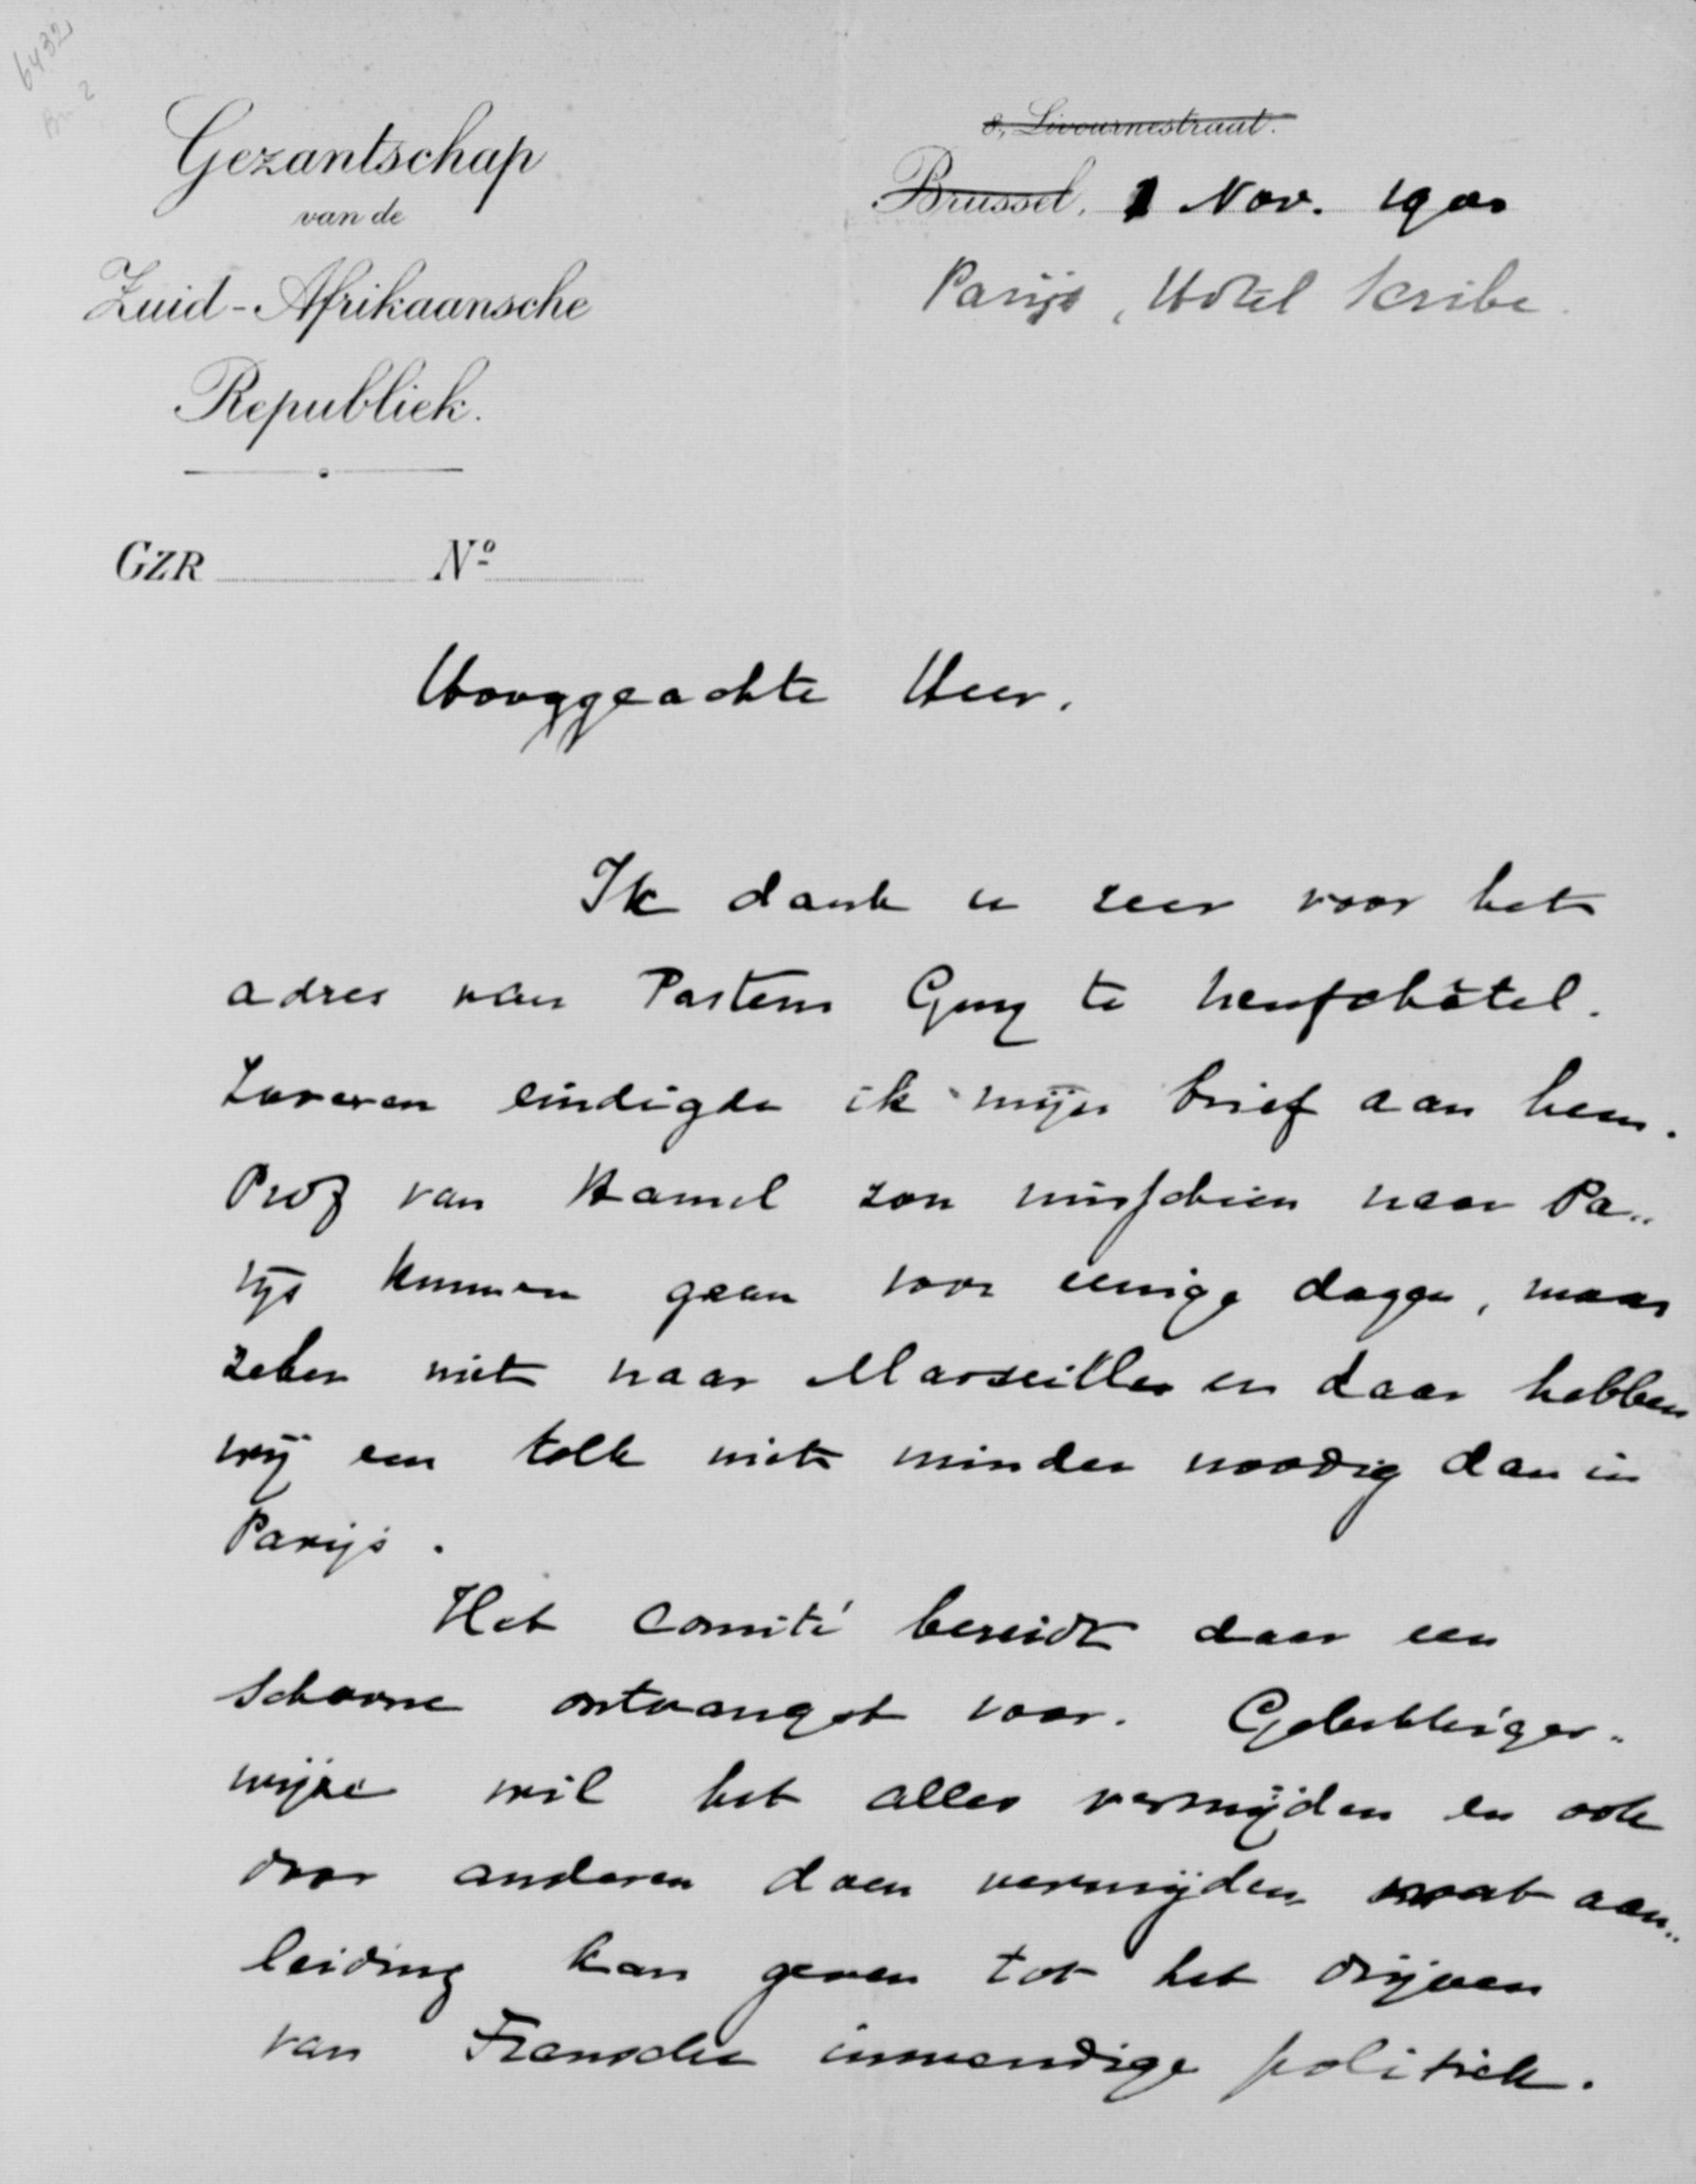 6432
Gezantschap
van de
Zuid-Afrikaansche
Republiek.
GZR Nº
8, Livournestraat.
Brussel, 1 Nov. 1900
Parijs, Hôtel Scribe.
Hooggeachte Heer,
Ik dank u zeer voor het
adres van Pasteur Guy te Neufchâtel.
Zoveren eindigde ik mijn brief aan hem.
Prof van Hamel zou misschien naar Pa„
rijs kunnen gaan voor eenige dagen, maar
zeker niet naar Marseilles en daar hebben
wij een tolk niet minder noodig dan in
Parijs.
Het comité bereidt daar een
schoone ontvangst voor. Gelukkiger„
wijze wil het alles vermijden en ook
door anderen doen vermijden wat aan„
leiding kan geven tot het drijven
van Fransche inwendige politiek.